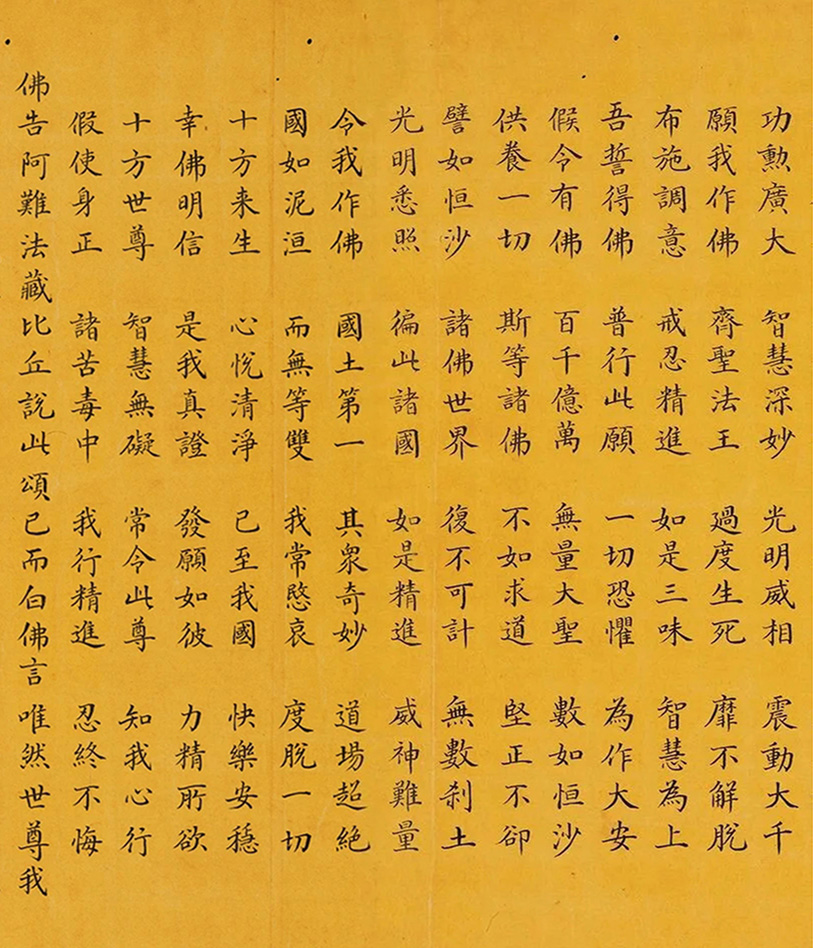 功勳廣大 智慧深妙 光明威相 震動大千
願我作佛 齊聖法王 過度生死 靡不解脫
布施調意 戒忍精進 如是三昧 智慧為上
吾誓得佛 普行此願 一切恐懼 為作大安
假令有佛 百千億萬 無量大聖 數如恒沙
供養一切 斯等諸佛 不如求道 堅正不卻
譬如恒沙 諸佛世界 復不可計 無數剎土
光明悉照 徧此諸國 如是精進 威神難量
令我作佛 國土第一 其衆奇妙 道場超絶
國如泥洹 而無等雙 我常愍哀 度脫一切
十方来生 心悅清淨 已至我國 快樂安穩
幸佛明信 是我真證 發願如彼 力精所欲
十方世尊 智慧無礙 常令此尊 知我心行
假使身正 諸苦毒中 我行精進 忍終不悔
佛告阿難法藏比丘說此頌已而白佛言唯然世尊我